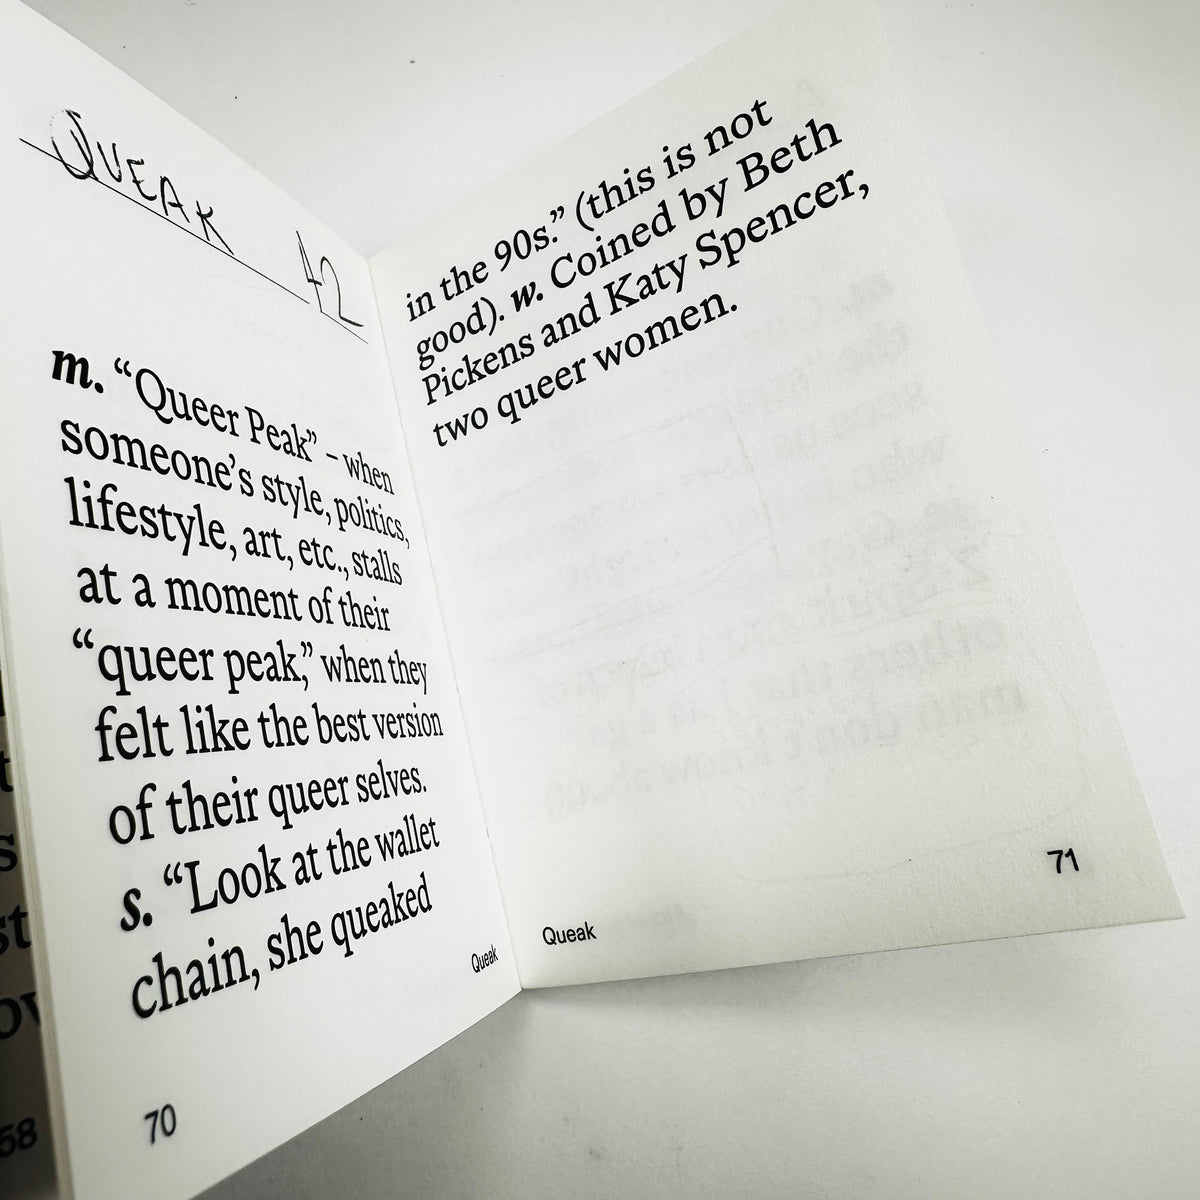 QUEAK 42
m. “Queer Peak” – when
someone’s style, politics,
lifestyle, art, etc., stalls
at a moment of their
“queer peak,” when they
felt like the best version
of their queer selves.
s. “Look at the wallet
chain, she queaked
Queak
70
in the 90s.” (this is not
good). w. Coined by Beth
Pickens and Katy Spencer,
two queer women.
Queak
71
58